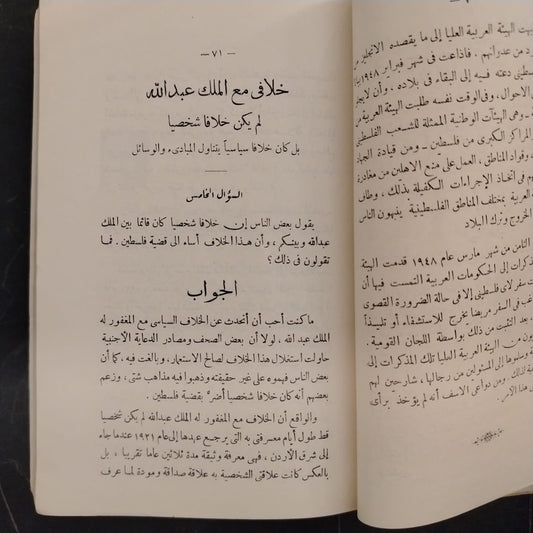 — ٧١ —
خلافى مع الملك عبدالله
لم يكن خلافا شخصيا
بل كان خلافا سياسياً يتناول المبادىء والوسائل
السؤال الخامس
يقول بعض الناس إن خلافا شخصيا كان قائما بين الملك
عبدالله وبينكم ، وأن هذا الخلاف أساء الى قضية فلسطين . فما
تقولون فى ذلك ؟
الجواب
ما كنت أحب أن أتحدث عن الخلاف السياسى مع المغفور له
الملك عبد الله ، لولا أن بعض الصحف ومصادر الدعاية الأجنبية
حاولت استغلال هذا الخلاف لصالح الاستعمار ، وبالغت فيه . كما أن
بعض الناس فهموه على غير حقيقته وذهبوا فيه مذاهب شتى ، وزعم
بعضهم أنه كان خلافا شخصيا أضر بقضية فلسطين .
والواقع أن الخلاف مع المغفور له الملك عبدالله لم يكن شخصيا
قط طول أيام معرفتى به التى يرجع عهدها إلى عام ١٩٢١ عندما جاء
إلى شرق الأردن ، فهى معرفة وثيقة مدة ثلاثين عاما تقريبا ، بل
بالعكس كانت علاقتى الشخصية به علاقة صداقة ومودة لما عرف
الهيئة العربية العليا إلى ما يقصده الانجليز
من عدوانهم ، فأذاعت فى شهر فبراير ١٩٤٨
دعته فيه إلى البقاء فى بلاده ، وأن لا
الاحوال ، وفى الوقت نفسه طلبت الهيئة العربية من
— وهى الهيئات الوطنية الممثلة للشعب الفلسطينى
المراكز الكبرى من فلسطين — ومن قيادة الجهاد
، وقواد المناطق ، العمل على منع الاهلين من مغادرة
فى اتخاذ الإجراءات الكفيلة بذلك ، وطاف
العربية بمختلف المناطق الفلسطينية ينبهون الناس
الخروج وترك البلاد
الثامن من شهر مارس عام ١٩٤٨ قدمت الهيئة
مذكرات إلى الحكومات العربية التمست فيها أن
سفر لأى فلسطينى إلا فى حالة الضرورة القصوى
فى السفر مريضا يخرج للاستشفاء أو تلميذاً
، بعد التثبت من ذلك بواسطة اللجان القومية .
من الهيئة العربية العليا تلك المذكرات إلى
وسلموها إلى المسئولين من رجالها ، شارحين لهم
لذلك . ومن دواعى الاسف أنه لم يؤخذ برأى
هذا الأمر .